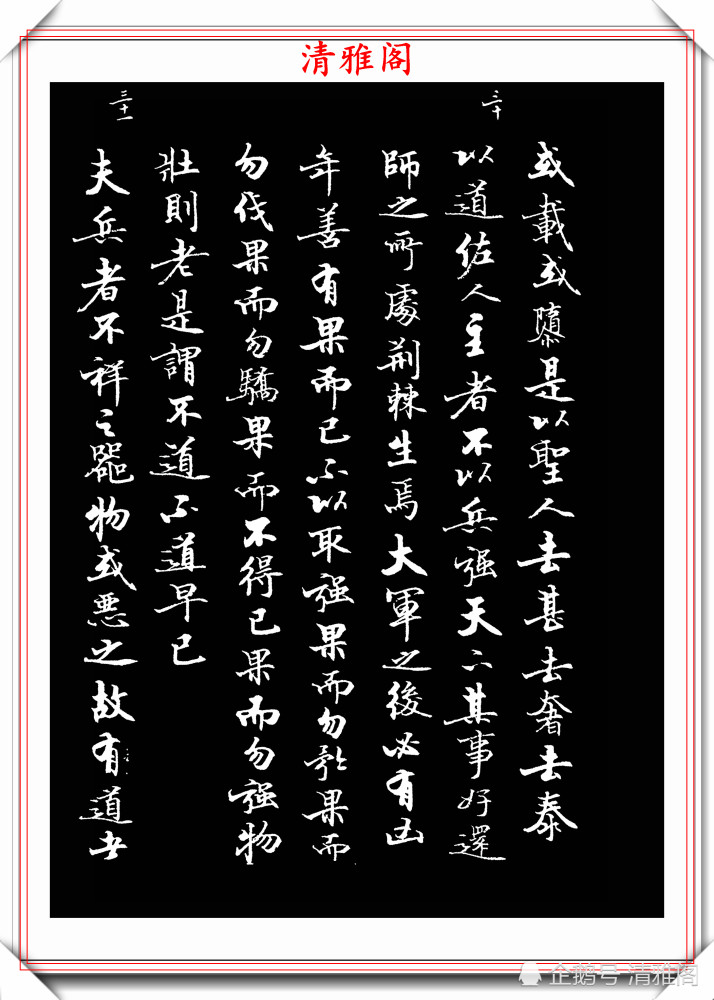 清雅阁
或載或隳是以聖人去甚去奢去泰
三十
以道佐人主者不以兵强天下其事好還
師之所處荆棘生焉大軍之後必有凶
年善有果而已不以取强果而勿矜果而
勿伐果而勿驕果而不得已果而勿强物
壯則老是謂不道不道早已
三十一
夫兵者不祥之器物或惡之故有道者
企鹅号 清雅阁